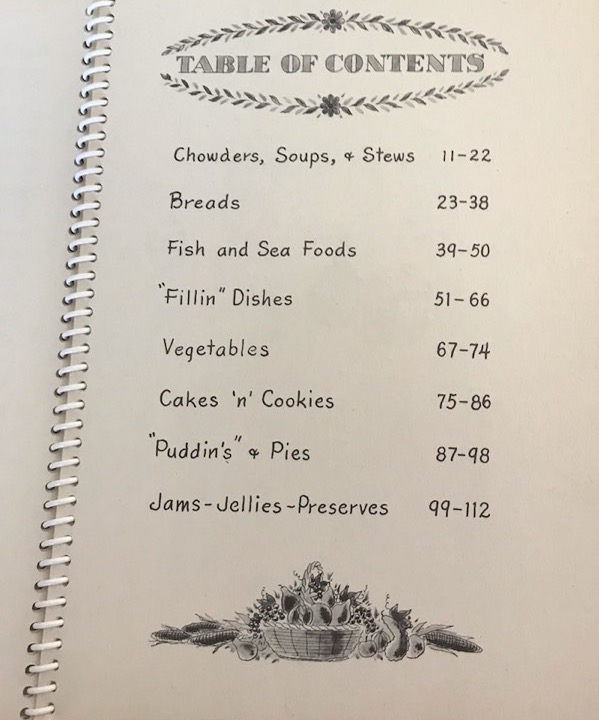 TABLE OF CONTENTS
Chowders, Soups, & Stews 11-22
Breads 23-38
Fish and Sea Foods 39-50
"Fillin" Dishes 51-66
Vegetables 67-74
Cakes 'n' Cookies 75-86
"Puddin's" & Pies 87-98
Jams-Jellies-Preserves 99-112